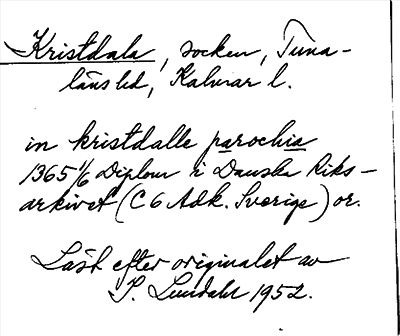 Kristdala, socken, Tuna-
läns hd, Kalmar l.
in kristdalle parochia
1365 1/6 Diplom i Danska Riks-
arkivet (C 6 Adk. Sverige) or.
Läst efter originalet av
I. Lundahl 1952.